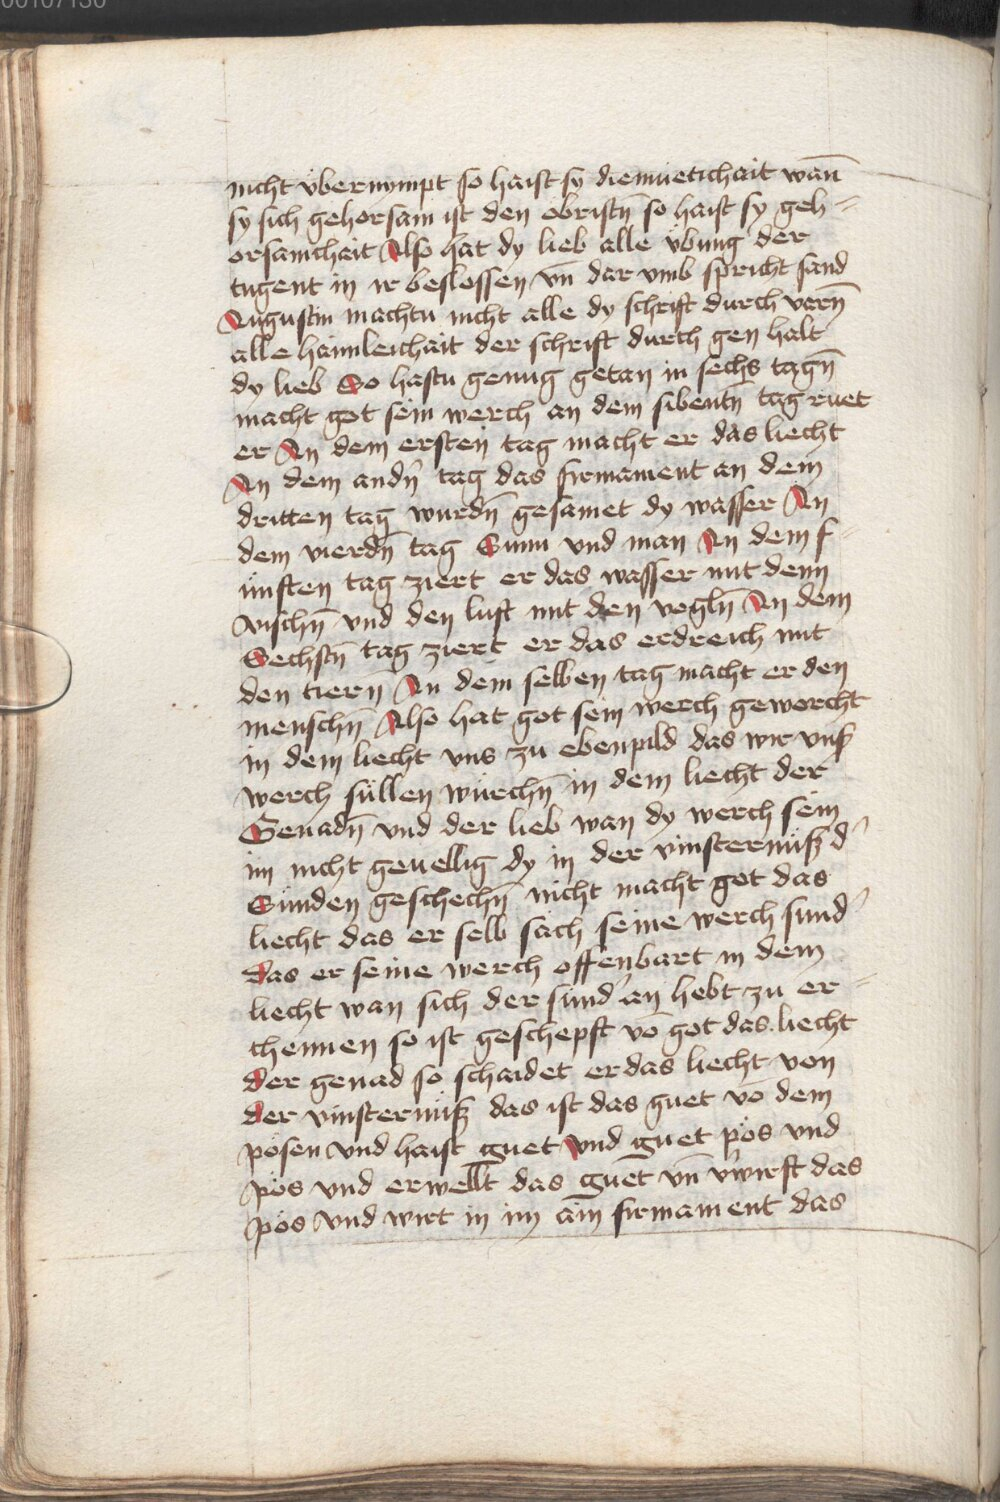 00107136
nicht übernympt so haist sy diemüetichait wan̄
sy sich gehorsam ist den öbristn̄ so haist sy geh-
orsamchait Also hat dy lieb alle übung der
tugent in ir beslossen vn̄ dar vmb spricht sand
Augustin machtu nicht alle dy schrift durch varn̄
alle haimleichait der schrift durch gen halt
dy lieb So hastu genug getan in sechs tagn̄
macht got sein werch an dem sibentn̄ tag ruet
er An dem ersten tag macht er das liecht
An dem andn̄ tag das firmament an dem
dritten tag wurdn̄ gesamet dy wasser An
dem vierdn̄ tag Sunn vnd man An dem f-
ünften tag ziert er das wasser mit denn
vischn̄ vnd den luft mit den vogln̄ An dem
Sechstn̄ tag ziert er das erdreich mit
den tiern̄ An dem selben tag macht er den
menschn̄ Also hat got sein werch geworcht
in dem liecht vns zu ebenpild das wir vnß
werch süllen würchn̄ in dem liecht der
Genadn̄ vnd der lieb wan dy werch sein
im nicht geuellig dy in der vinsternüß d'
Sünden geschechn̄ nicht macht got das
liecht das er selb säch seine werch sund'
das er seine werch offenbart in dem
liecht wan sich der sünd' an hebt zu er-
chennen so ist geschepft vō got das liecht
der genad so schaidet er das liecht von
der vinsternüß das ist das guet vō dem
pösen vnd haist guet vnd guet pös vnd
pös vnd erwellt das guet vn̄ v'wirft das
pös vnd wirt in im ain firmament das